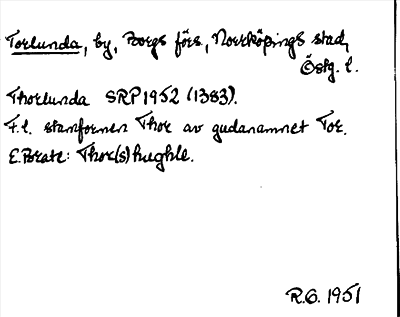 Torlunda, by, Borgs förs, Norrköpings stad,
Östg. l.
Thorlunda SRP 1952 (1383).
F.l. stamformen Thor av gudanamnet Tor.
E. Brate: Thor(s)hughle.
R.O. 1951